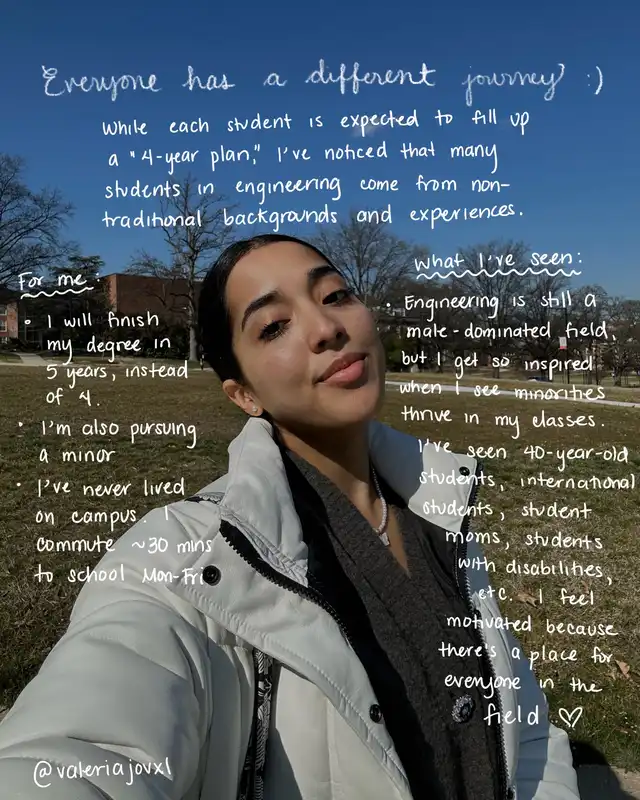 Everyone has a different journey :)
While each student is expected to fill up
a "4-year plan," I've noticed that many
students in engineering come from non-
traditional backgrounds and experiences.
For me:
• I will finish
my degree in
5 years, instead
of 4.
• I'm also pursuing
a minor
• I've never lived
on campus. I
commute ~30 mins
to school Mon-Fri
What I've seen:
• Engineering is still a
male-dominated field,
but I get so inspired
when I see minorities
thrive in my classes.
I've seen 40-year-old
students, international
students, student
moms, students
with disabilities,
etc. I feel
motivated because
there's a place for
everyone in the
field ♡
@valeriajovxl